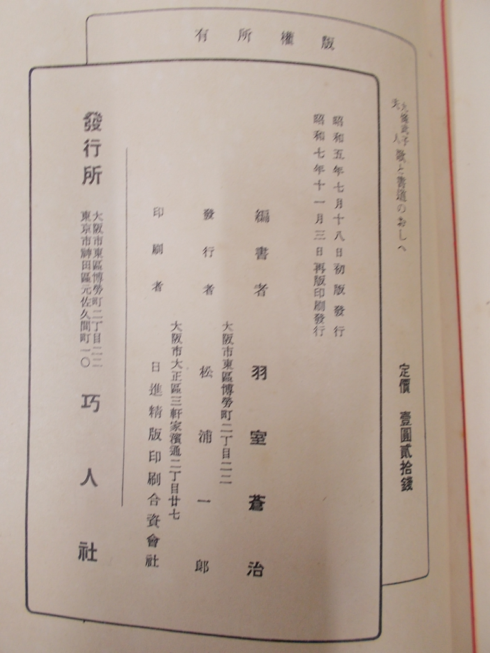 版權所有
九條武子
夫人
歌と書道のおしへ
定價 壹圓貳拾錢
昭和五年七月十八日初版發行
昭和七年十一月三日再版印刷發行
編書者 羽室蒼治
大阪市東區博勞町二丁目二二
發行者 松浦一郎
大阪市大正區三軒家濱通二丁目廿七
印刷者 日進精版印刷合資會社
大阪市東區博勞町二丁目二二
東京市神田區元佐久間町一〇
發行所 巧人社